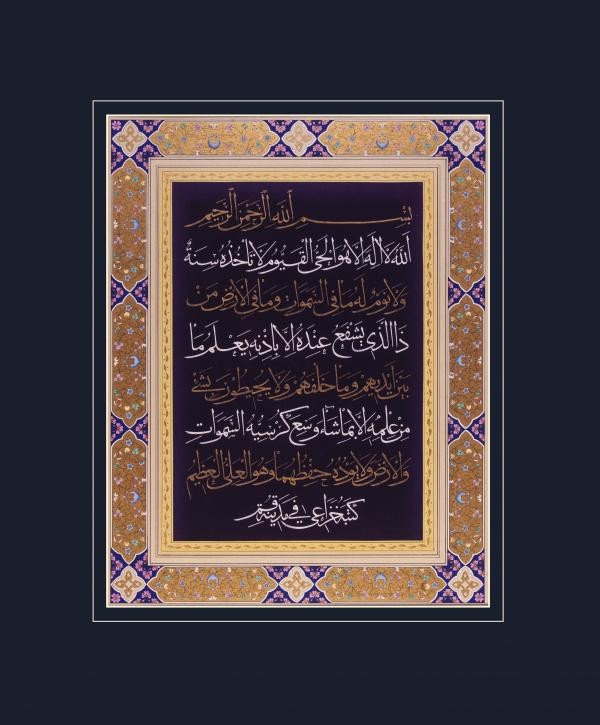 بِسْمِ ٱللَّهِ ٱلرَّحْمٰنِ ٱلرَّحِيمِ
اَللّٰهُ لَا اِلٰهَ اِلَّا هُوَ الْحَىُّ الْقَيُّومُ لَا تَأْخُذُهُ سِنَةٌ
وَلَا نَوْمٌ لَهُ مَا فِى السَّمٰوَاتِ وَمَا فِى الْاَرْضِ مَنْ
ذَا الَّذِى يَشْفَعُ عِنْدَهُ اِلَّا بِاِذْنِهِ يَعْلَمُ مَا
بَيْنَ اَيْدِيهِمْ وَمَا خَلْفَهُمْ وَلَا يُحِيطُونَ بِشَىْءٍ
مِنْ عِلْمِهِ اِلَّا بِمَا شَاءَ وَسِعَ كُرْسِيُّهُ السَّمٰوَاتِ
وَالْاَرْضَ وَلَا يَؤُدُهُ حِفْظُهُمَا وَهُوَ الْعَلِىُّ الْعَظِيمُ
كتبه خزاعی فی مدینة قم